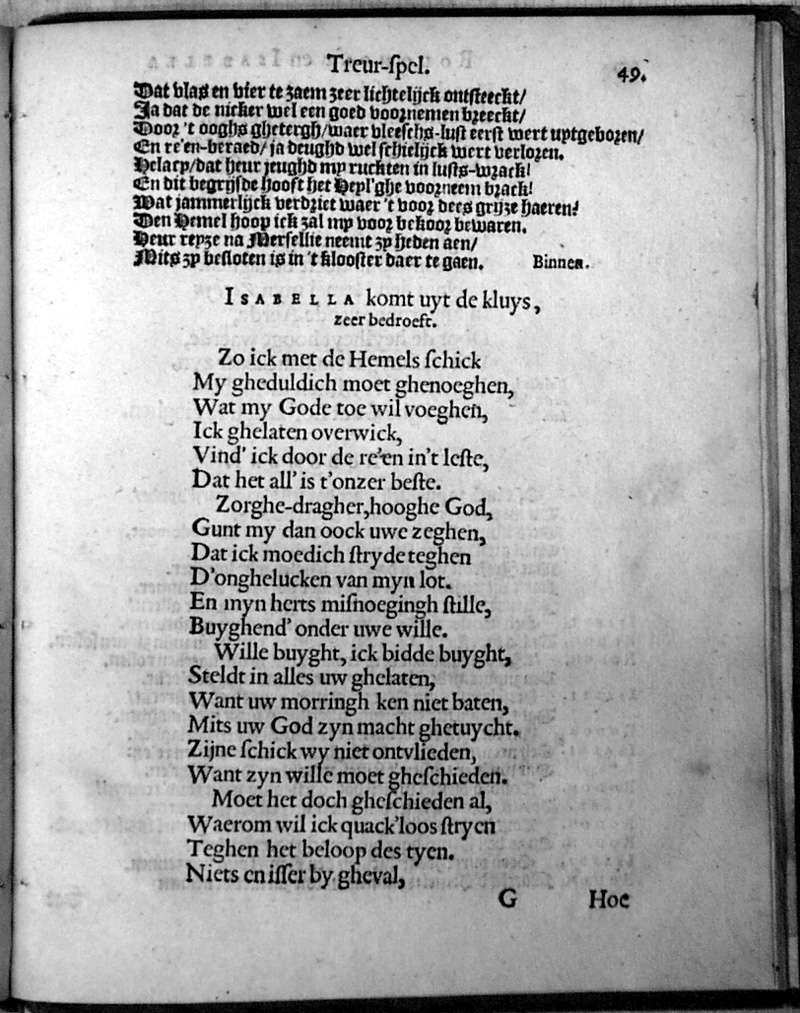 Treur-ſpel. 49.
Dat vlas en vier te zaem zeer lichtelijck ontſteeckt/
Ja dat de nicker wel een goed voornemen breeckt/
Door 't ooghs ghetergh/waer vleeſchs-luſt eerſt wert uptgeboren/
En re'en-beraed/ ja deughd wel ſchielijck wert verloren.
Helaep/dat heur jeughd mp ruckten in luſts-wrack!
En dit begrijſde hooft het Hepl'ghe voorneem brack!
Wat jammerlijck verdriet waer 't voor dees grijze haeren!
Den Hemel hoop ick zal mp voor bekoor bewaren.
Heur repze na Merſellie neemt zp heden aen/
Mits zp beſloten is in 't klooſter daer te gaen. Binnen.
ISABELLA komt uyt de kluys,
zeer bedroeft.
Zo ick met de Hemels ſchick
My gheduldich moet ghenoeghen,
Wat my Gode toe wil voeghen,
Ick ghelaten overwick,
Vind' ick door de re'en in't leſte,
Dat het all' is t'onzer beſte.
Zorghe-dragher,hooghe God,
Gunt my dan oock uwe zeghen,
Dat ick moedich ſtryde teghen
D'onghelucken van myn lot.
En myn herts miſnoegingh ſtille,
Buyghend' onder uwe wille.
Wille buyght, ick bidde buyght,
Steldt in alles uw ghelaten,
Want uw morringh ken niet baten,
Mits uw God zyn macht ghetuycht.
Zijne ſchick wy niet ontvlieden,
Want zyn wille moet gheſchieden.
Moet het doch gheſchieden al,
Waerom wil ick quack'loos ſtryen
Teghen het beloop des tyen.
Niets en iſſer by gheval,
G Hoe